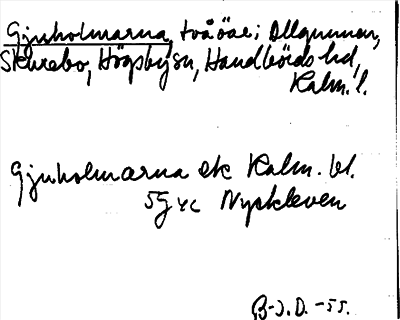 Gjuholmarna, två öar i Allgunnen,
Skurebo, Högsby sn, Handbörds hd,
Kalm. l.
Gjuholmarna ek Kalm. bl.
5G 4c Nyskleven
B-J.D. -55.